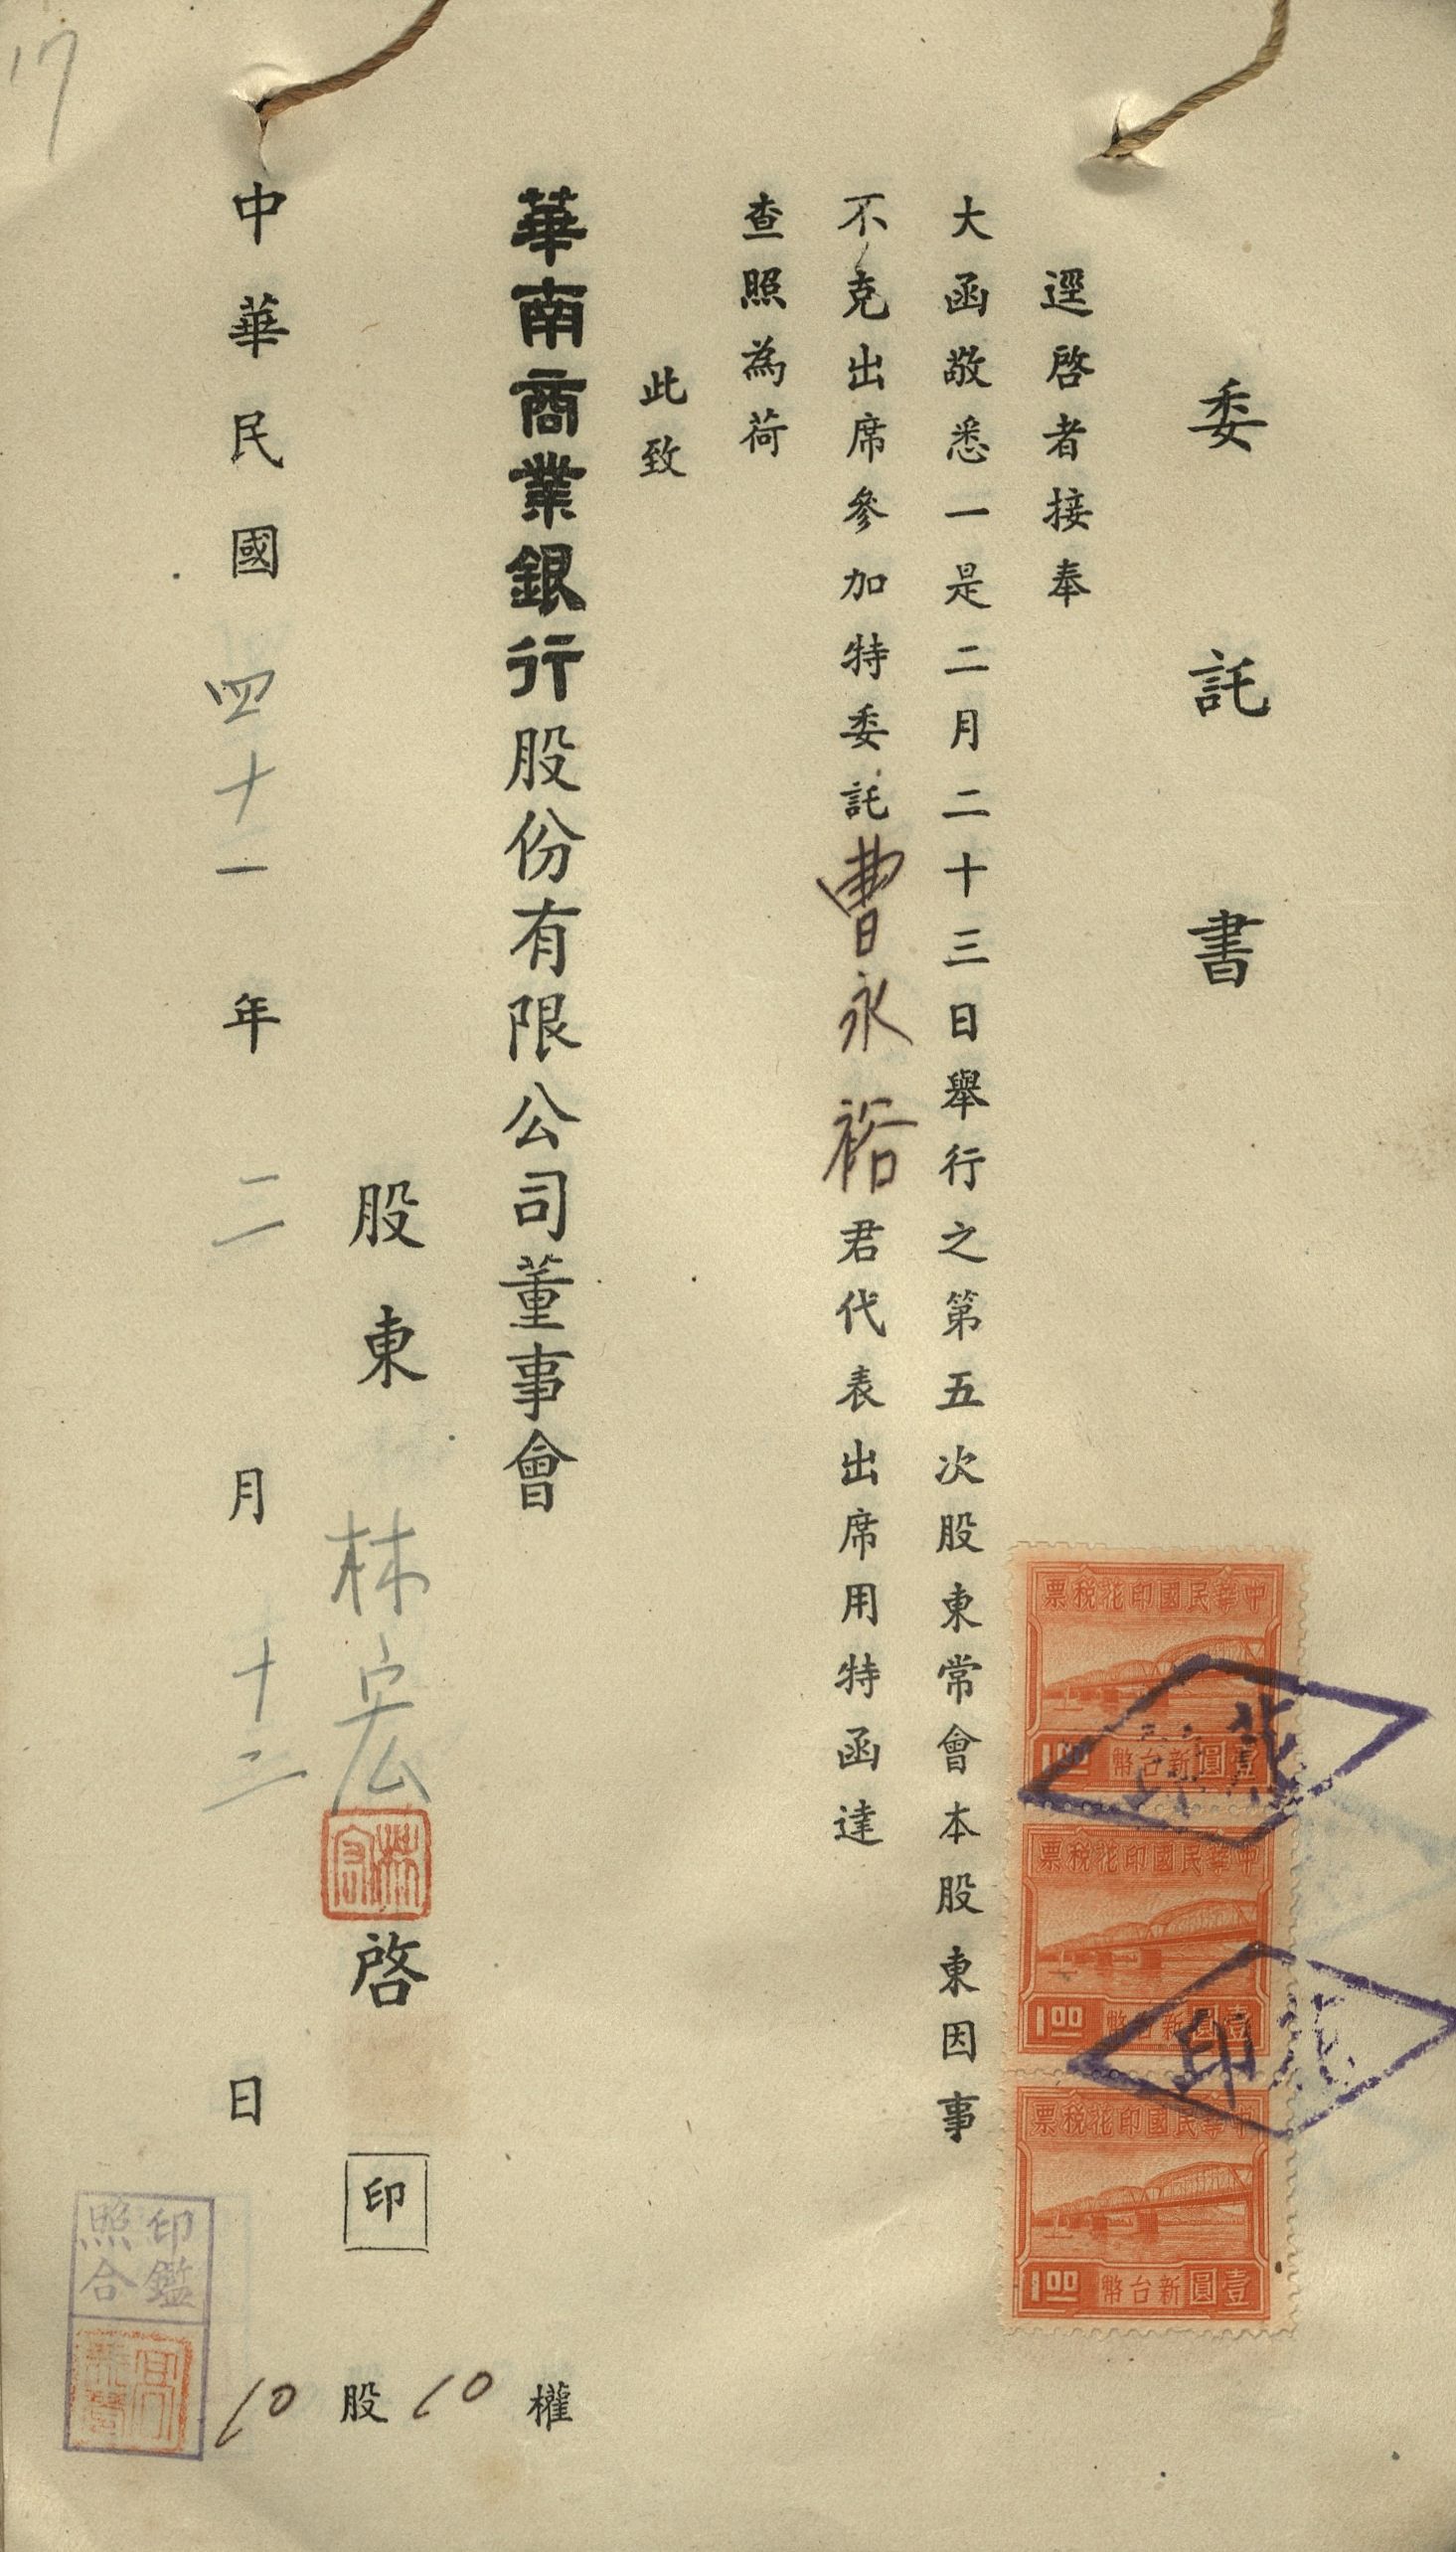 17
委託書
逕啓者接奉
大函敬悉一是二月二十三日舉行之第五次股東常會本股東因事
不克出席參加特委託曹永裕君代表出席用特函達
查照為荷
此致
華南商業銀行股份有限公司董事會
股東 林宏 啓 印
中華民國四十一年二月十二日
10股10權
中華民國印花稅票
壹圓新台幣
1.00
中華民國印花稅票
壹圓新台幣
1.00
中華民國印花稅票
壹圓新台幣
1.00
花印
花印
印鑑
照合